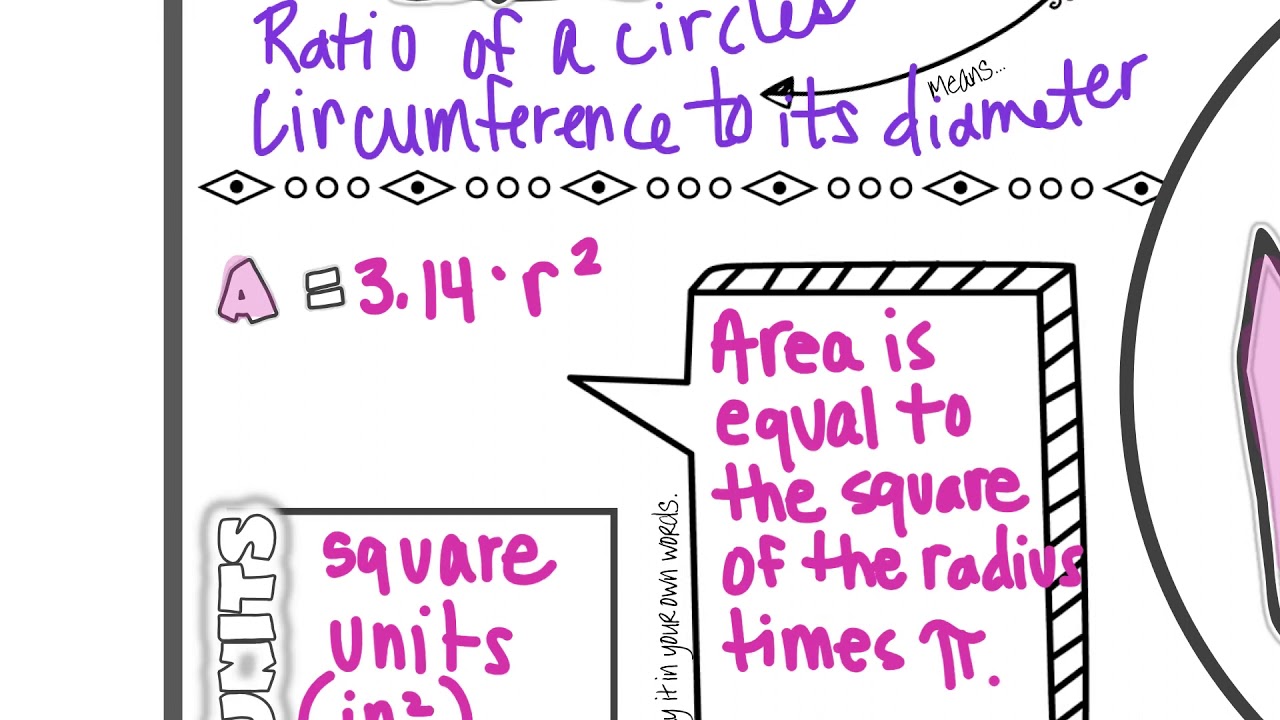 Ratio of a circles
circumference to its diameter
means...
A = 3.14 · r²
Area is
equal to
the square
of the radius
times π.
y it in your own words.
UNITS
square
units
(in²)